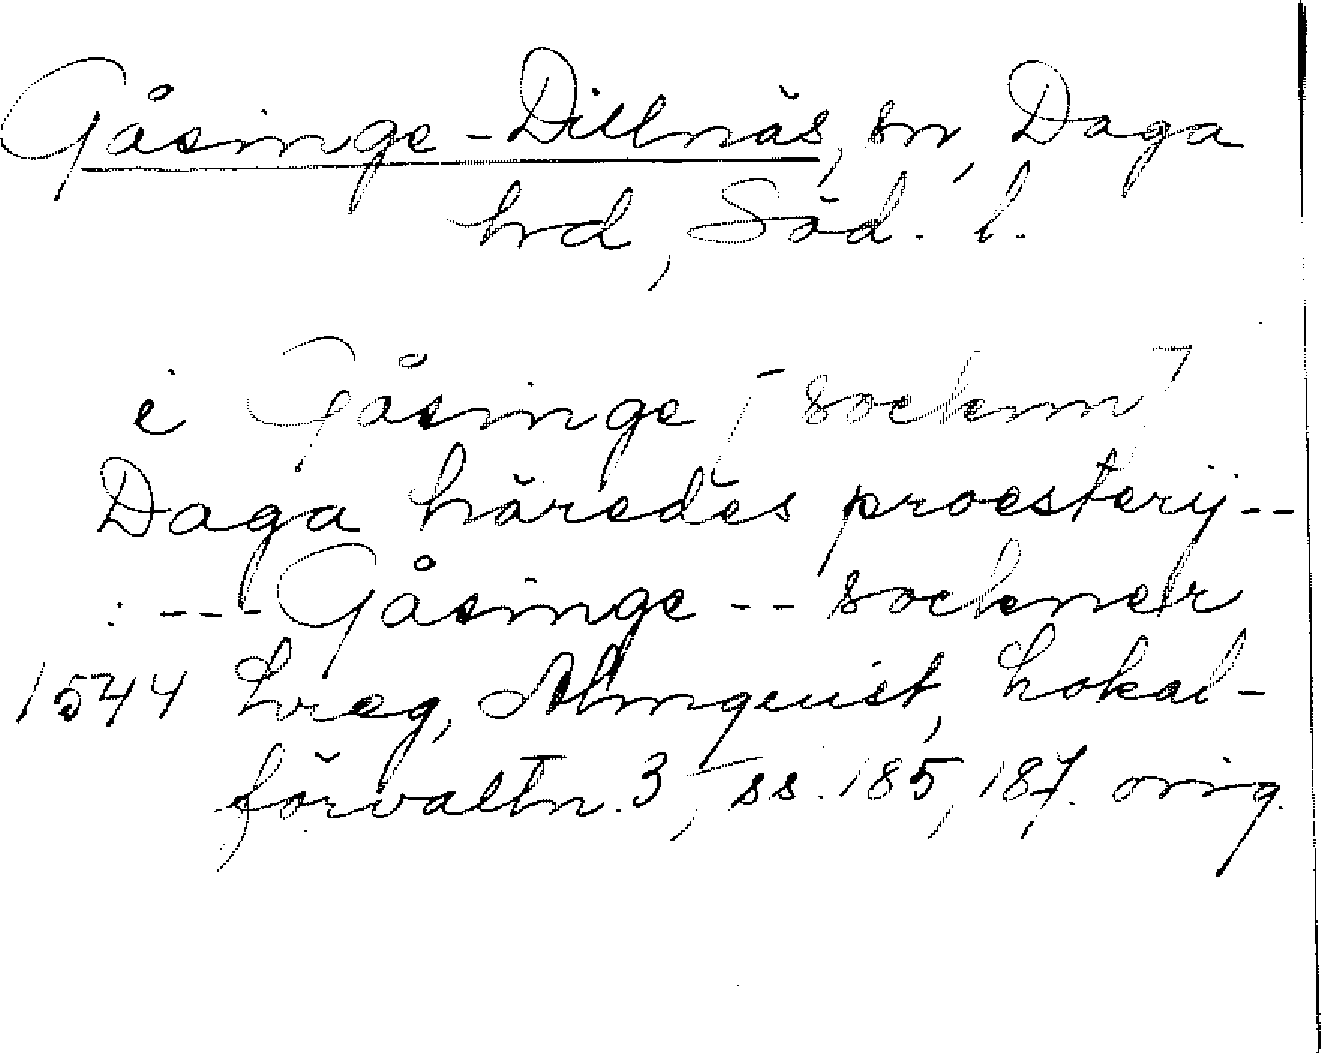 Gåsinge-Dillnäs, sn, Daga
hrd, Söd. l.
i Gåsinge [socken]
Daga häredes proesterij--
: --- Gåsinge -- sockner
1544 Lreg, Almquist, Lokal-
förvaltn. 3, ss. 185, 187. orig.